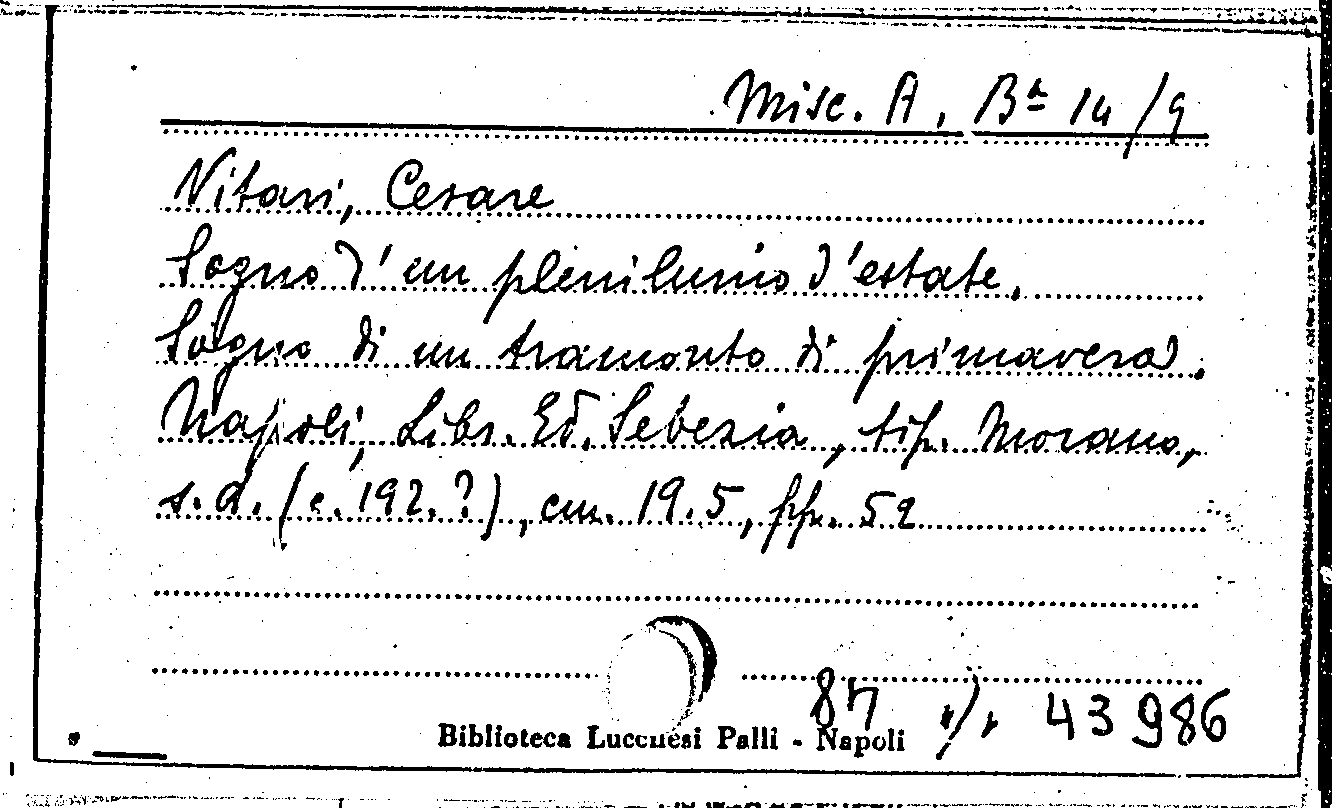 Misc. A. Bª 14/9
Vitari, Cesare
Sogno d'un plenilunio d'estate.
Sogno di un tramonto di primavera.
Napoli, Libr. Ed. Sebezia, tip. Morano,
s.d. (c. 192.?), cm. 19.5, pp. 52
87 43986
Biblioteca Lucchesi Palli - Napoli